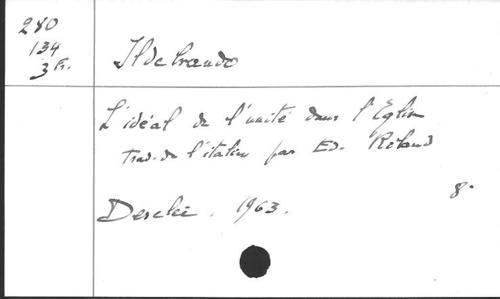 280
134
3 Fr.
Ildebrando
L'idéal de l'unité dans l'Eglise
Trad. de l'italien par Ed. Roland
8°
Desclée. 1963.